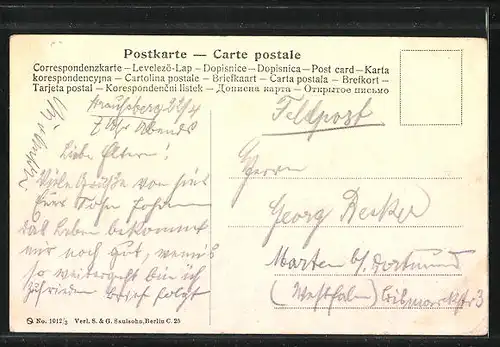 Postkarte — Carte postale
Correspondenzkarte – Levelező-Lap – Dopisnice – Dopisnica – Post card – Karta
korespondencyjna – Cartolina postale – Briefkaart – Carta postala – Brefkort –
Tarjeta postal – Korespondenční listek – Дописна карта – Открытое письмо
22/4
7 Uhr Abends
Feldpost
Liebe Eltern!
Viele Grüße von hier
Euer Sohn
das Leben bekommt
mir noch gut, wenn's
so weitergeht bin ich
zufrieden Brief folgt
Herrn
Georg Becker
Marten b/ Dortmund
(Westfalen) Bismarckstr 3
No. 1012/5 Verl. S. & G. Saulsohn, Berlin C. 25